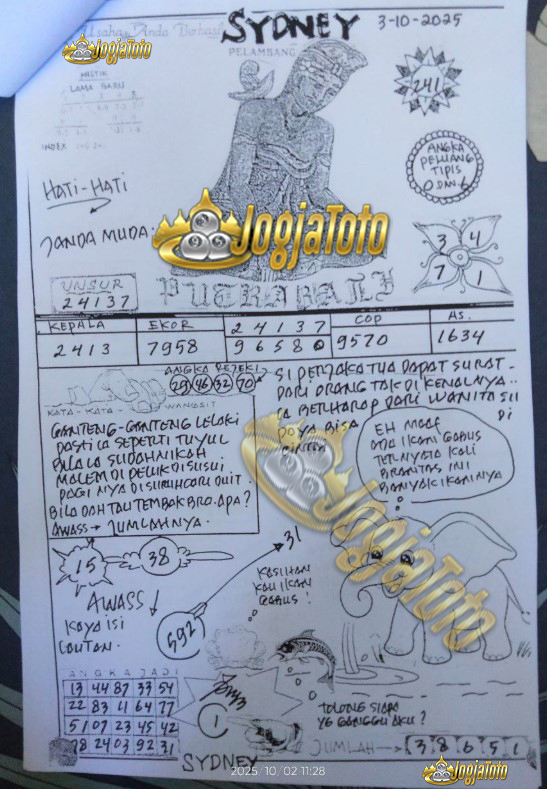 SYDNEY
3-10-2025
Usaha Anda Berhasil
JogjaToto
PELAMBANG
MISTIK
LAMA BARU
INDEX
241
ANGKA
PELUANG
TIPIS
0 DAN 6
HATI-HATI
JANDA MUDA:
JogjaToto
3 4
7 1
UNSUR
24137
PUTRA BALI
KEPALA EKOR 24137 COP AS.
2413 7958 96580 9570 1634
ANGKA REJEKI
29 46 32 70
KATA-KATA WANGSIT
SI PERJAKA TUA DAPAT SURAT-
DARI ORANG TAK DI KENALNYA..
IA BERHARAP DARI WANITA SII
DOYA BISA
DI
GANTENG-GANTENG LELAKI
PASTI LA SEPERTI TUYUL
BILA LA SUDAH NIKAH
MALEM DI PELUK DI SUSUI
PAGI NYA DI SURUH CORI DUIT.
BILA DAH TAU TEMBAK BRO. APA?
AWASS → JUMLAHNYA.
EH MAAF
ADA IKAN GABUS
TERNYATA KALI
BRANTAS INI
BANYAK IKANNYA
15
38
31
592
AWASS!
KAYA ISI
LAUTAN.
KASIHAN
KAU IKAN
GABUS!
JogjaToto
ANGKA JADI
13 44 87 33 54
22 83 11 64 77
51 07 23 45 42
98 24 03 92 31
1
TOLONG SIAPA
YG GANGGU AKU?
JUMLAH → 3 8 6 5 1
SYDNEY
2025/10/02 11:28
JogjaToto